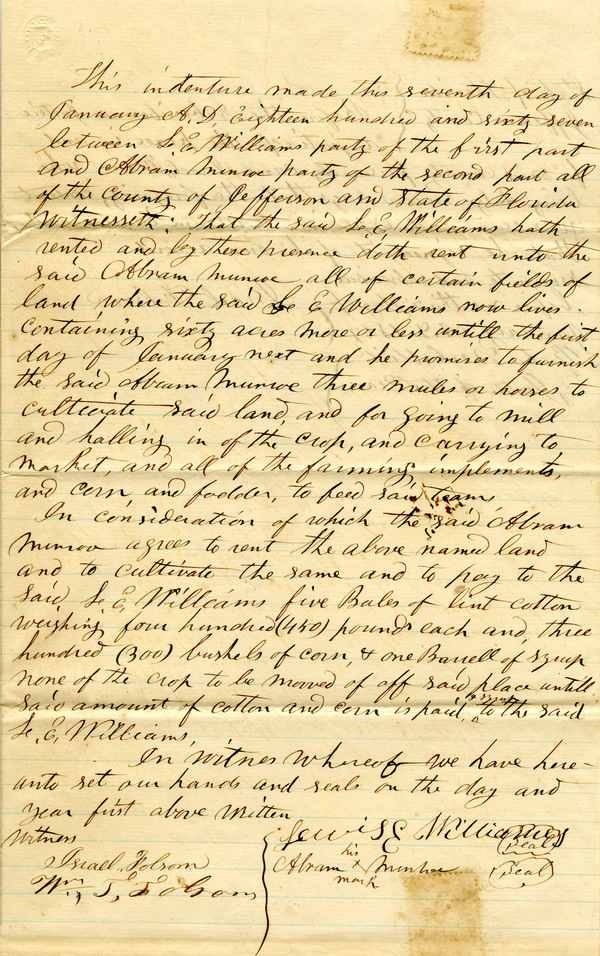 This indenture made this seventh day of
January A.D. Eighteen hundred and sixty seven
between L. E. Williams party of the first part
and Abram Munroe party of the second part all
of the County of Jefferson and State of Florida
Witnesseth: That the said L. E. Williams hath
rented and by these presence doth rent unto the
said Abram Munroe all of certain fields of
land where the said L E Williams now lives.
Containing sixty acres more or less untill the first
day of January next and he promises to furnish
the said Abram Munroe three mules or horses to
cultivate said land, and for going to mill
and halling in of the crop, and carrying to
market, and all of the farming implements,
and corn and fodder, to feed said team
In consideration of which the said Abram
Munroe agrees to rent the above named land
and to cultivate the same and to pay to the
said L. E. Williams five Bales of lint cotton
weighing four hundred (450) pounds each and, three
hundred (300) bushels of corn, & one Barrell of syrup
none of the crop to be mooved of off said place untill
said amount of cotton and corn is paid, & syrup to the said
L. E. Williams,
In witnes whereof we have here-
unto set our hands and seals on the day and
year first above written
Witness
Lewis E Williams (Seal)
Israel Folsom
Abram his x mark Munroe (Seal)
Wm. T. Folsom